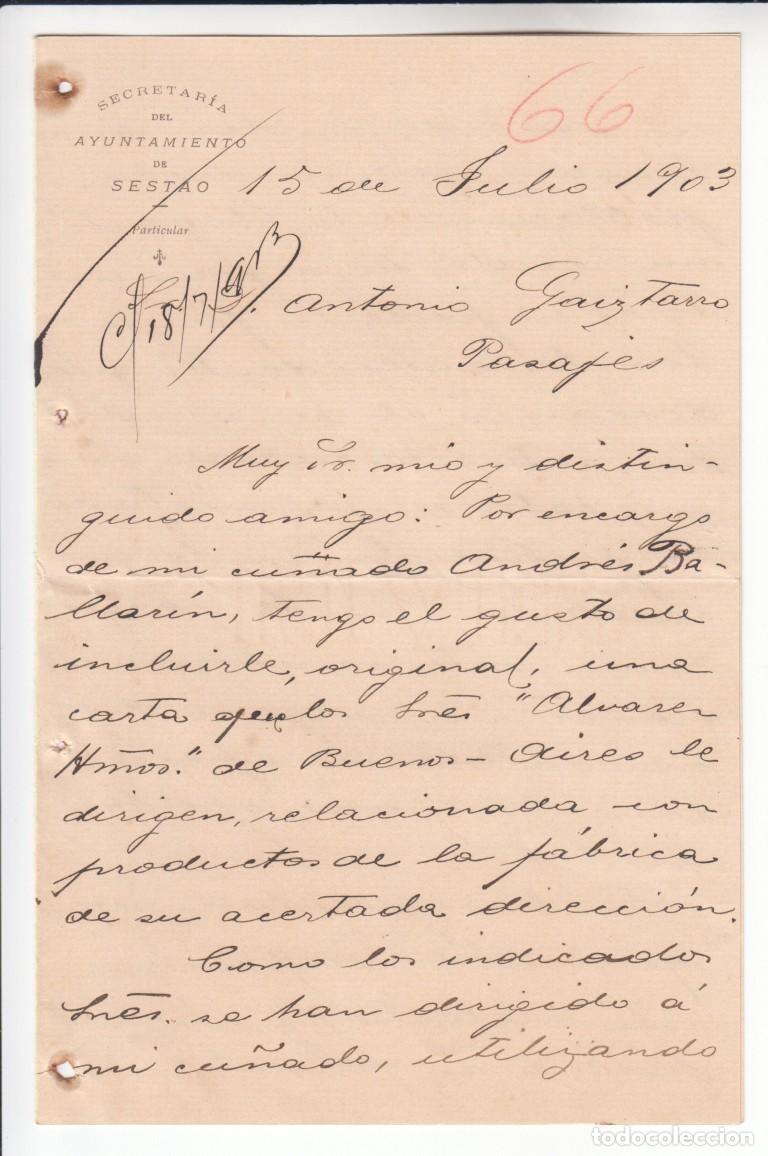 66
SECRETARÍA
DEL
AYUNTAMIENTO
DE
SESTAO
Particular
15 de Julio 1903
18/7/903
D. Antonio Gaiztarro
Pasajes
Muy Sr. mio y distin-
guido amigo: Por encargo
de mi cuñado Andrés Ba-
llarín, tengo el gusto de
incluirle, original, una
carta que los Sres "Alvarez
Hños." de Buenos-Aires le
dirigen, relacionada con
productos de la fábrica
de su acertada dirección.
Como los indicados
Sres. se han dirigido á
mi cuñado, utilizando
todocoleccion